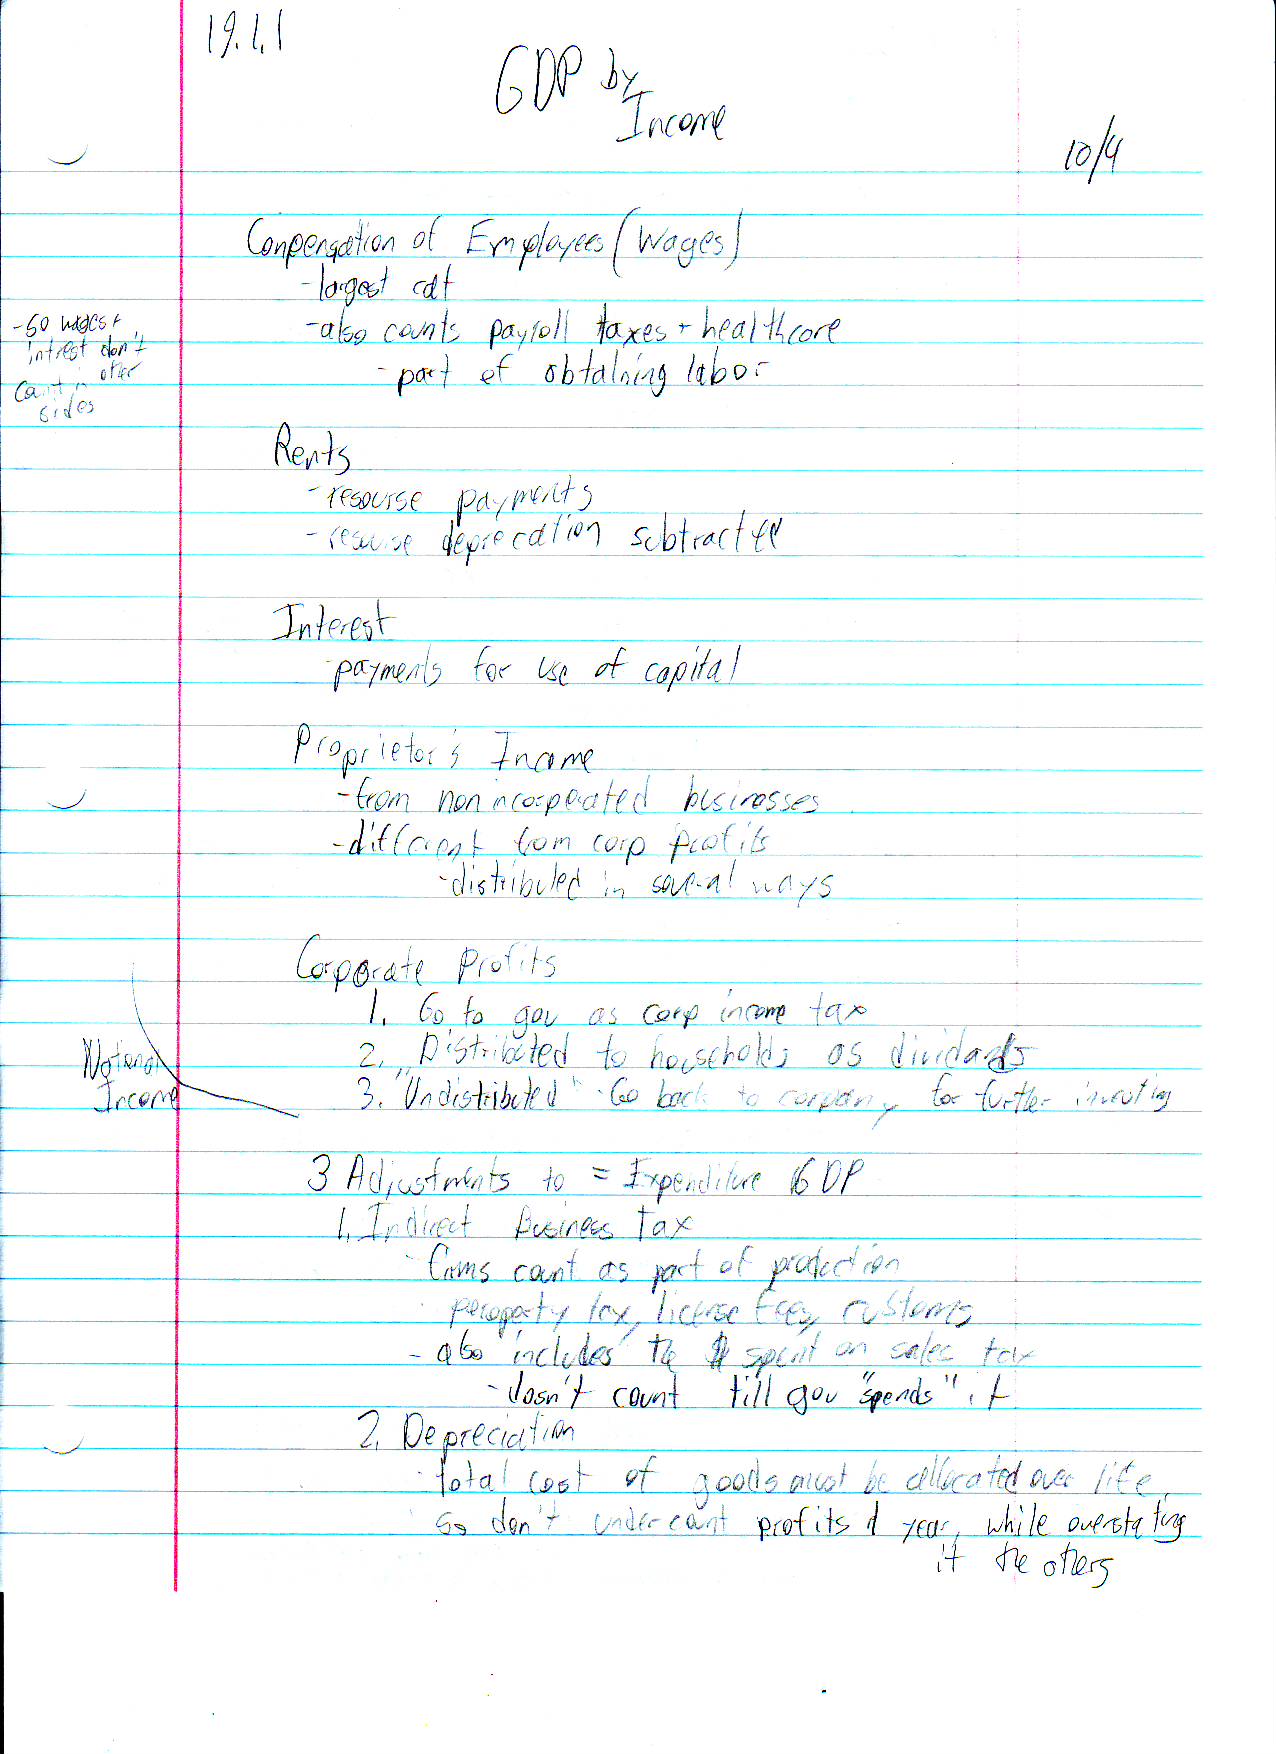 19.1.1
GDP by
Income
10/4
Conpensation of Employees (Wages)
- largest cat
- also counts payroll taxes + healthcare
- part of obtaining labor
- so wages +
intrest don't
count in other
sides
Rents
- resourse payments
- resourse deprecation subtracted
Interest
- payments for use of capital
Proprietor's Income
- from nonincorperated businesses
- different from corp profits
- distributed in several ways
Corporate Profits
1. Go to gov as corp income tax
2. Distributed to households as dividands
3. "Undistributed" - Go back to company for further investing
National
Income
3 Adjustments to = Expenditure GDP
1. Indirect Business Tax
- firms count as part of production
- peroperty tax, license fees, customs
- also includes the $ spent on sales tax
- dosn't count till gov "spends" it
2. Depreciation
- total cost of goods must be allocated over life,
so don't undercount profits 1 year, while overstating
it the others